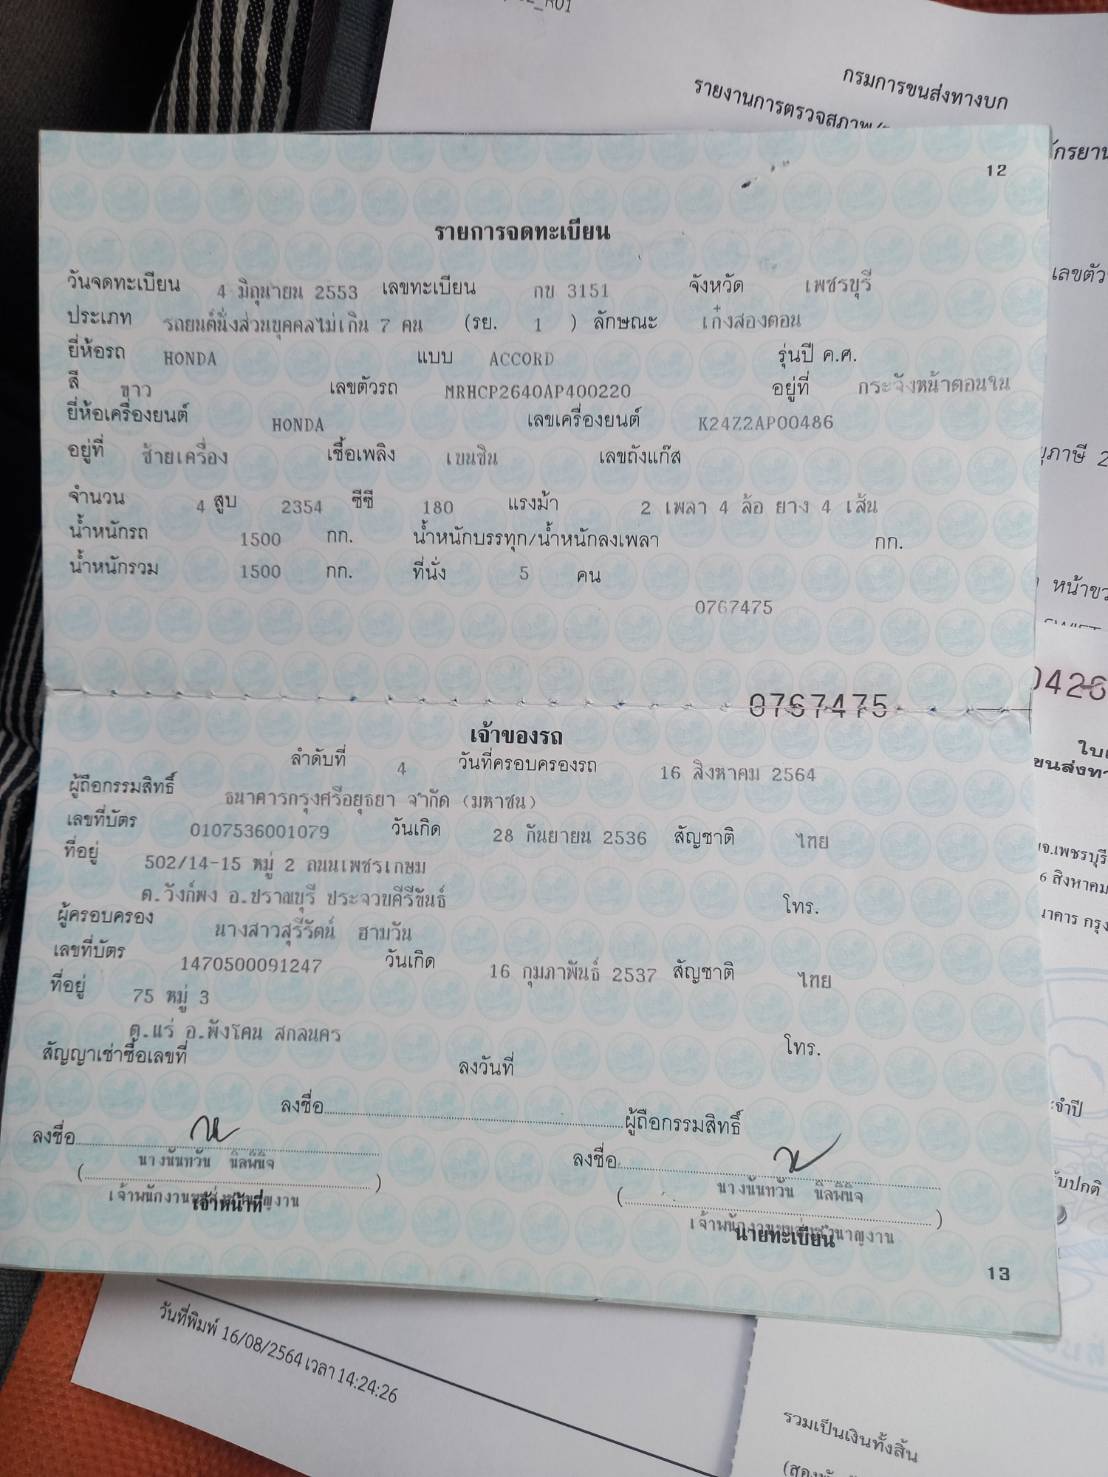 _R01
กรมการขนส่งทางบก
รายงานการตรวจสภาพ
12
รายการจดทะเบียน
วันจดทะเบียน 4 มิถุนายน 2553 เลขทะเบียน กข 3151 จังหวัด เพชรบุรี
ประเภท รถยนต์นั่งส่วนบุคคลไม่เกิน 7 คน (รย. 1 ) ลักษณะ เก๋งสองตอน
ยี่ห้อรถ HONDA แบบ ACCORD รุ่นปี ค.ศ.
สี ขาว เลขตัวรถ MRHCP2640AP400220 อยู่ที่ กระจังหน้าตอนใน
ยี่ห้อเครื่องยนต์ HONDA เลขเครื่องยนต์ K24Z2AP00486
อยู่ที่ ซ้ายเครื่อง เชื้อเพลิง เบนซิน เลขถังแก๊ส
จำนวน 4 สูบ 2354 ซีซี 180 แรงม้า 2 เพลา 4 ล้อ ยาง 4 เส้น
น้ำหนักรถ 1500 กก. น้ำหนักบรรทุก/น้ำหนักลงเพลา กก.
น้ำหนักรวม 1500 กก. ที่นั่ง 5 คน
0767475
0767475
เจ้าของรถ
ลำดับที่ 4 วันที่ครอบครองรถ 16 สิงหาคม 2564
ผู้ถือกรรมสิทธิ์ ธนาคารกรุงศรีอยุธยา จำกัด (มหาชน)
เลขที่บัตร 0107536001079 วันเกิด 28 กันยายน 2536 สัญชาติ ไทย
ที่อยู่ 502/14-15 หมู่ 2 ถนนเพชรเกษม
ต.วังก์พง อ.ปราณบุรี ประจวบคีรีขันธ์ โทร.
ผู้ครอบครอง นางสาวสุรีรัตน์ ฮามวัน
เลขที่บัตร 1470500091247 วันเกิด 16 กุมภาพันธ์ 2537 สัญชาติ ไทย
ที่อยู่ 75 หมู่ 3
ต.แร่ อ.พังโคน สกลนคร โทร.
สัญญาเช่าซื้อเลขที่ ลงวันที่
ลงชื่อ ผู้ถือกรรมสิทธิ์
ลงชื่อ ลงชื่อ
นางนันทวัน นิลพินิจ นางนันทวัน นิลพินิจ
เจ้าหน้าที่ นายทะเบียน
13
วันที่พิมพ์ 16/08/2564 เวลา 14:24:26
รวมเป็นเงินทั้งสิ้น